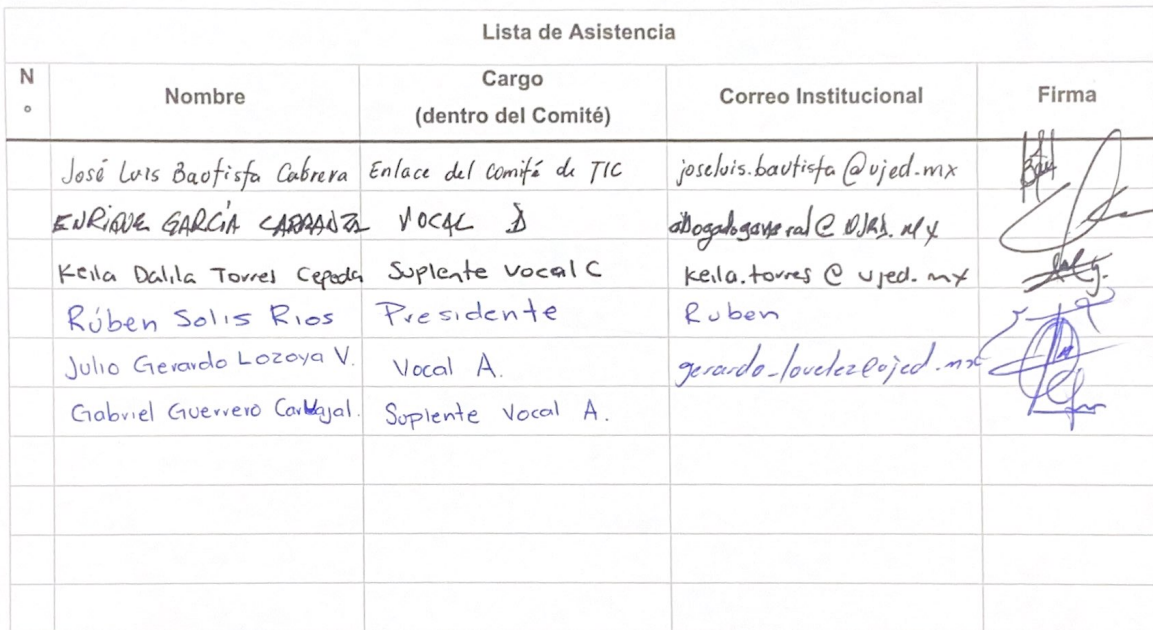 Lista de Asistencia
N° Nombre Cargo (dentro del Comité) Correo Institucional Firma
José Luis Bautista Cabrera Enlace del comité de TIC joseluis.bautista@ujed.mx
ENRIQUE GARCÍA CARRANZA VOCAL D abogadogeneral@UJED.MX
Keila Dalila Torres Cepeda Suplente Vocal C keila.torres@ujed.mx
Rúben Solis Rios Presidente Ruben
Julio Gerardo Lozoya V. Vocal A.
Gabriel Guerrero Carvajal. Suplente Vocal A.